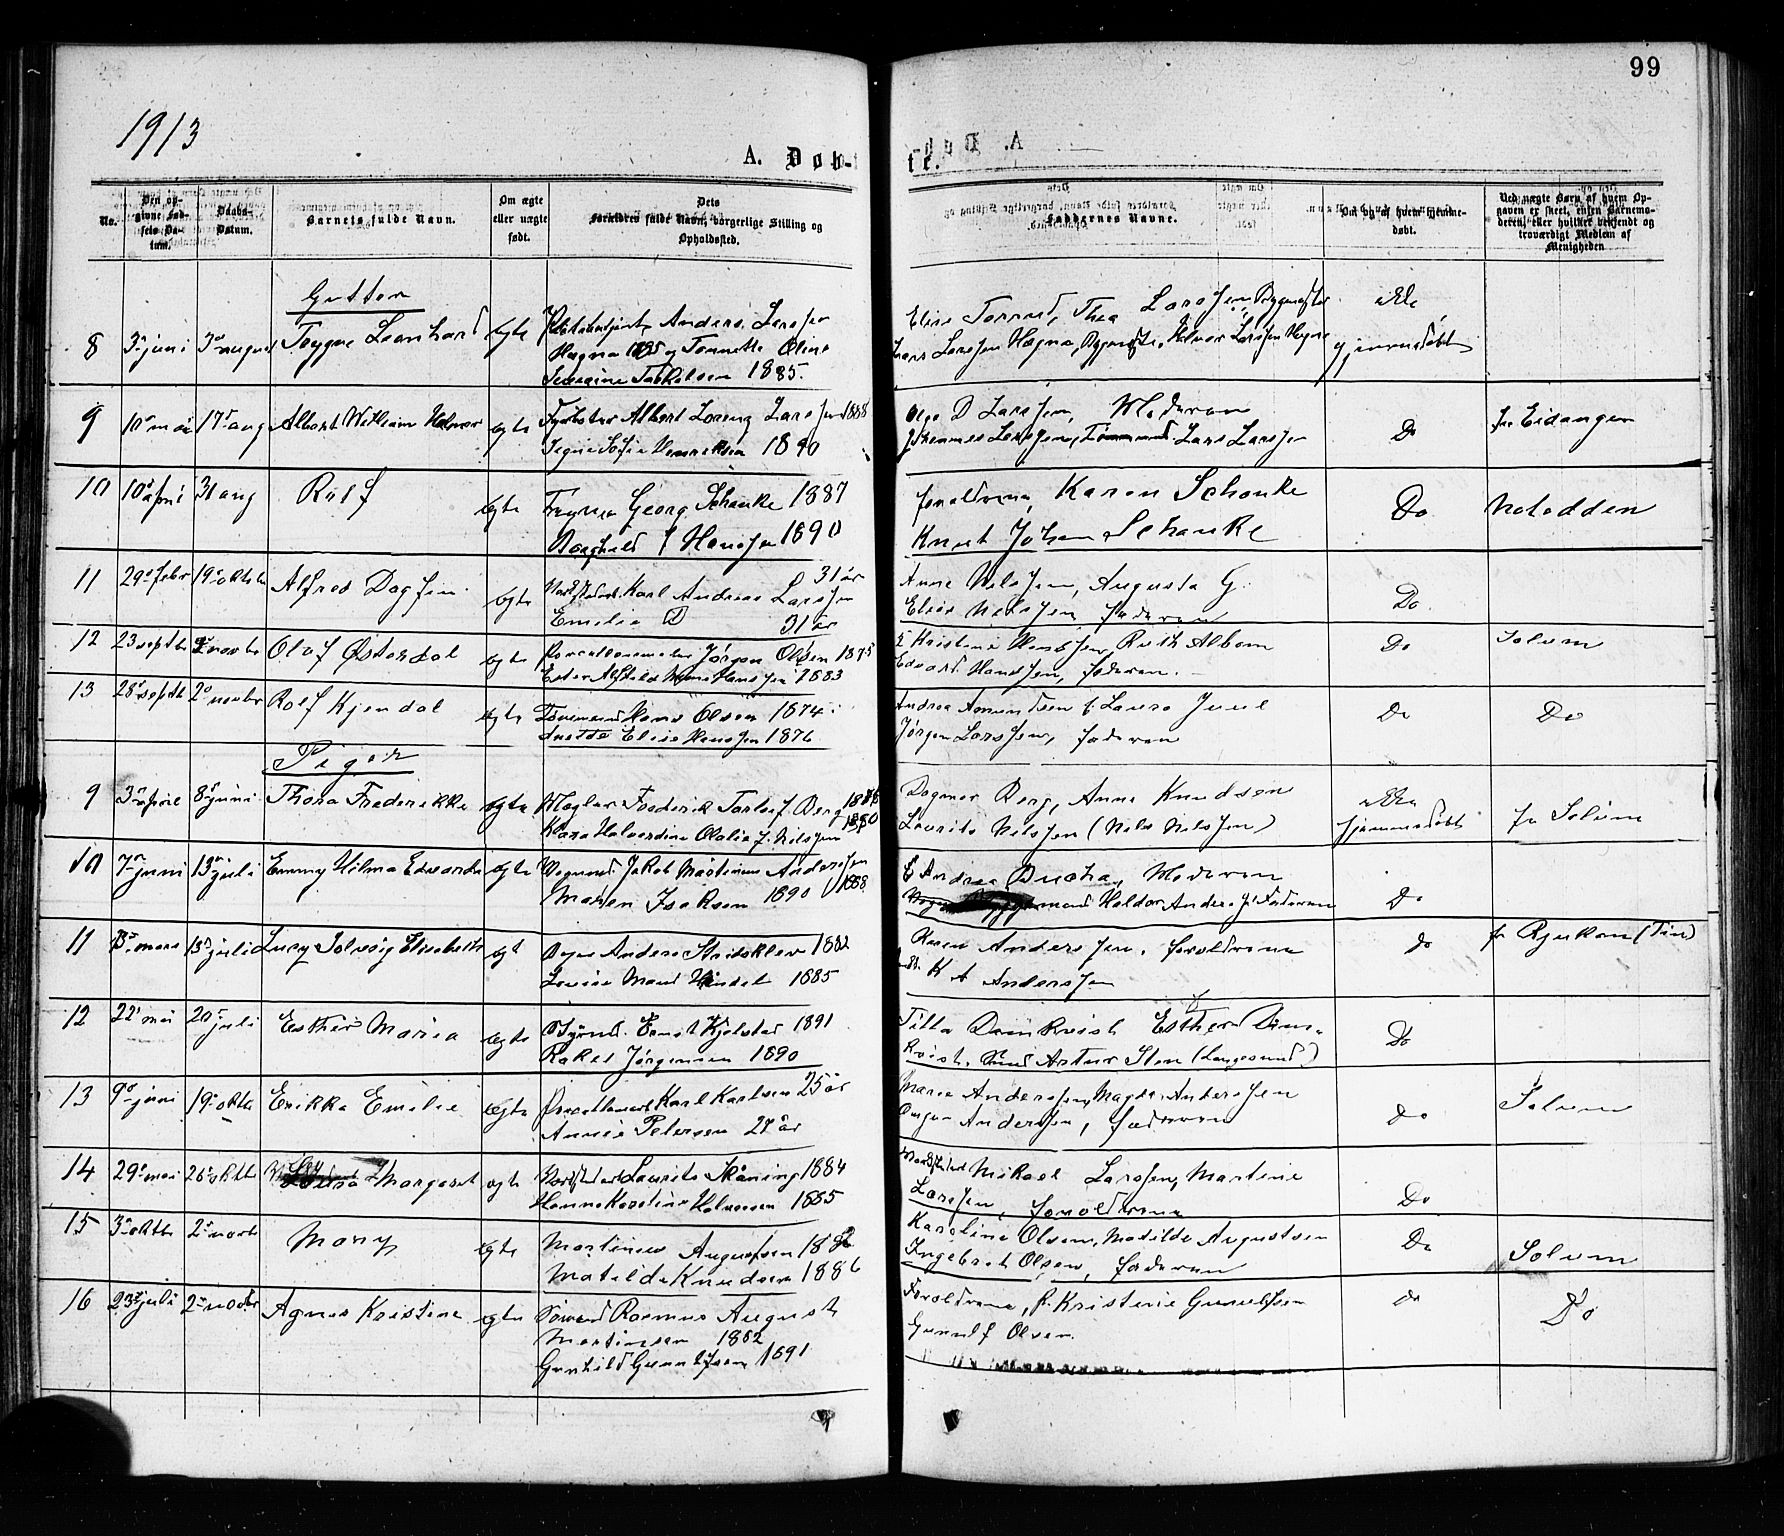 99
1913
A. Døb-
te.
No.
Den op-
givne Fød-
sels Da-
tum.
Daabs-
Datum.
Barnets fulde Navn.
Om ægte
eller uægte
født.
Dets
Forældres fulde Navn, borgerlige Stilling og
Opholdssted.
Faddernes Navne.
Om og af hvem hjemme-
døbt.
Ved uægte Børn af hvem Op-
gaven er skeet, enten Barnemo-
deren, eller hvilket bekjendt og
troværdigt Medlem af
Menigheden
Gutter
8 3 juni 3 august Trygve Leonhard ægte Anders Larssen
Hagna 1885 og Tonnette Oline
Severine Torkelsen 1885.
Elise Torrud, Thea Larssen, Byggmester
Lars Larssen Høgne, Halvor Larssen
ikke
hjemmedøbt
9 10 mai 17 aug Albert William Halvor ægte Fyrbøter Albert Lorenz Larssen 1888
Signe Sofie Henriksen 1890
Olga D Larssen, Moderen
Johannes Larssen, Tømmermd. Lars Larssen
Do
fr Eidanger
10 10 april 31 aug Rolf ægte Georg Schanke 1887
Borghild J Hanssen 1890
foreldrene, Karen Schanke
Knut Johan Schanke
Do
Notodden
11 29 febr 19 oktbr Alfred Dagfin ægte Karl Andreas Larssen 31 år
Emilie D 31 år
Anne Nilssen, Augusta G.
Elise Nilssen, faderen
Do.
12 23 septbr 2 novbr Olaf Østerdal ægte Jørgen Olsen 1875
Ester Hanssen 1883
Kristine Hanssen, Ruth Albom
Edvard Hanssen, faderen.
Do
Solum
13 28 septbr 2 novbr Rolf Kjendal ægte Hans Olsen 1874
Elise Hanssen 1876
Andrea Amundsen f. Laura Juul
Jørgen Larssen, faderen
Do
Do
Piger
9 3 april 8 juni Thora Frederikke ægte Mægler Frederik Torleif Berg
Klara Halvordine Olalia f. Nilssen 1880
Dagmar Berg, Anna Knudsen
Laurits Nilssen (Nils Nilssen)
ikke
hjemmedøbt
fr Solum
10 7 juni 13 juli Emmy Hilma Edvarda ægte Vognmand Jakob Martinius Anderssen 1888
Maren Isaksen 1890
Andrea Bucha, Moderen
Haldor Anderssen Faderen
Do
11 13 mars 13 juli Lucy Solveig Elisabeth ægt Anders Stridsklev 1882
Louise Maud Hindal 1885
Karen Anderssen, foreldrene
K A Anderssen
do
fr Rjukan (Tin)
12 22 mai 20 juli Esther Maria ægte Ernst Kjelstad 1891
Rakel Jørgensen 1890
Tilla Damkvist Esther Dam-
kvist. Artur Sten (Langesund)
Do
13 9 juni 19 oktbr Erikka Emilie ægte Karl Karlsen 25 år
Annie Petersen 27 år
Marie Anderssen, Magda Anderssen
Anderssen, faderen
Do
Solum
14 29 mai 26 oktbr Margaret ægte Laurits Skåning 1884
Hanna Karoline Halvorsen 1885
Mikael Larssen, Martine
Larssen, foreldrene
Do
15 3 oktbr 2 novbr Mary ægte Martinius Augustsen 1882
Matilde Knudsen 1886
Karoline Olsen, Matilde Augustsen
Ingebret Olsen, faderen
Do
Solum
16 23 juli 2 novbr Agnes Kristine ægte Sømand Rasmus August
Martinsen 1882
Gunhild Gunulfsen 1891
Foreldrene, f. Kristine Gunulfsen
Gunulf Olsen.
do
Do